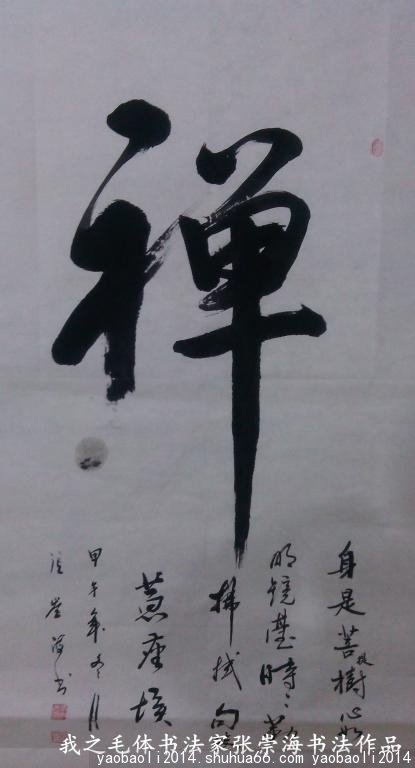 禅
身是菩提樹心如
明镜臺時〻勤
拂拭勿
甲午年冬月
張崇海书
我之毛体书法家张崇海书法作品
yaobaoli2014.shuhua66.com yaobaoli2014